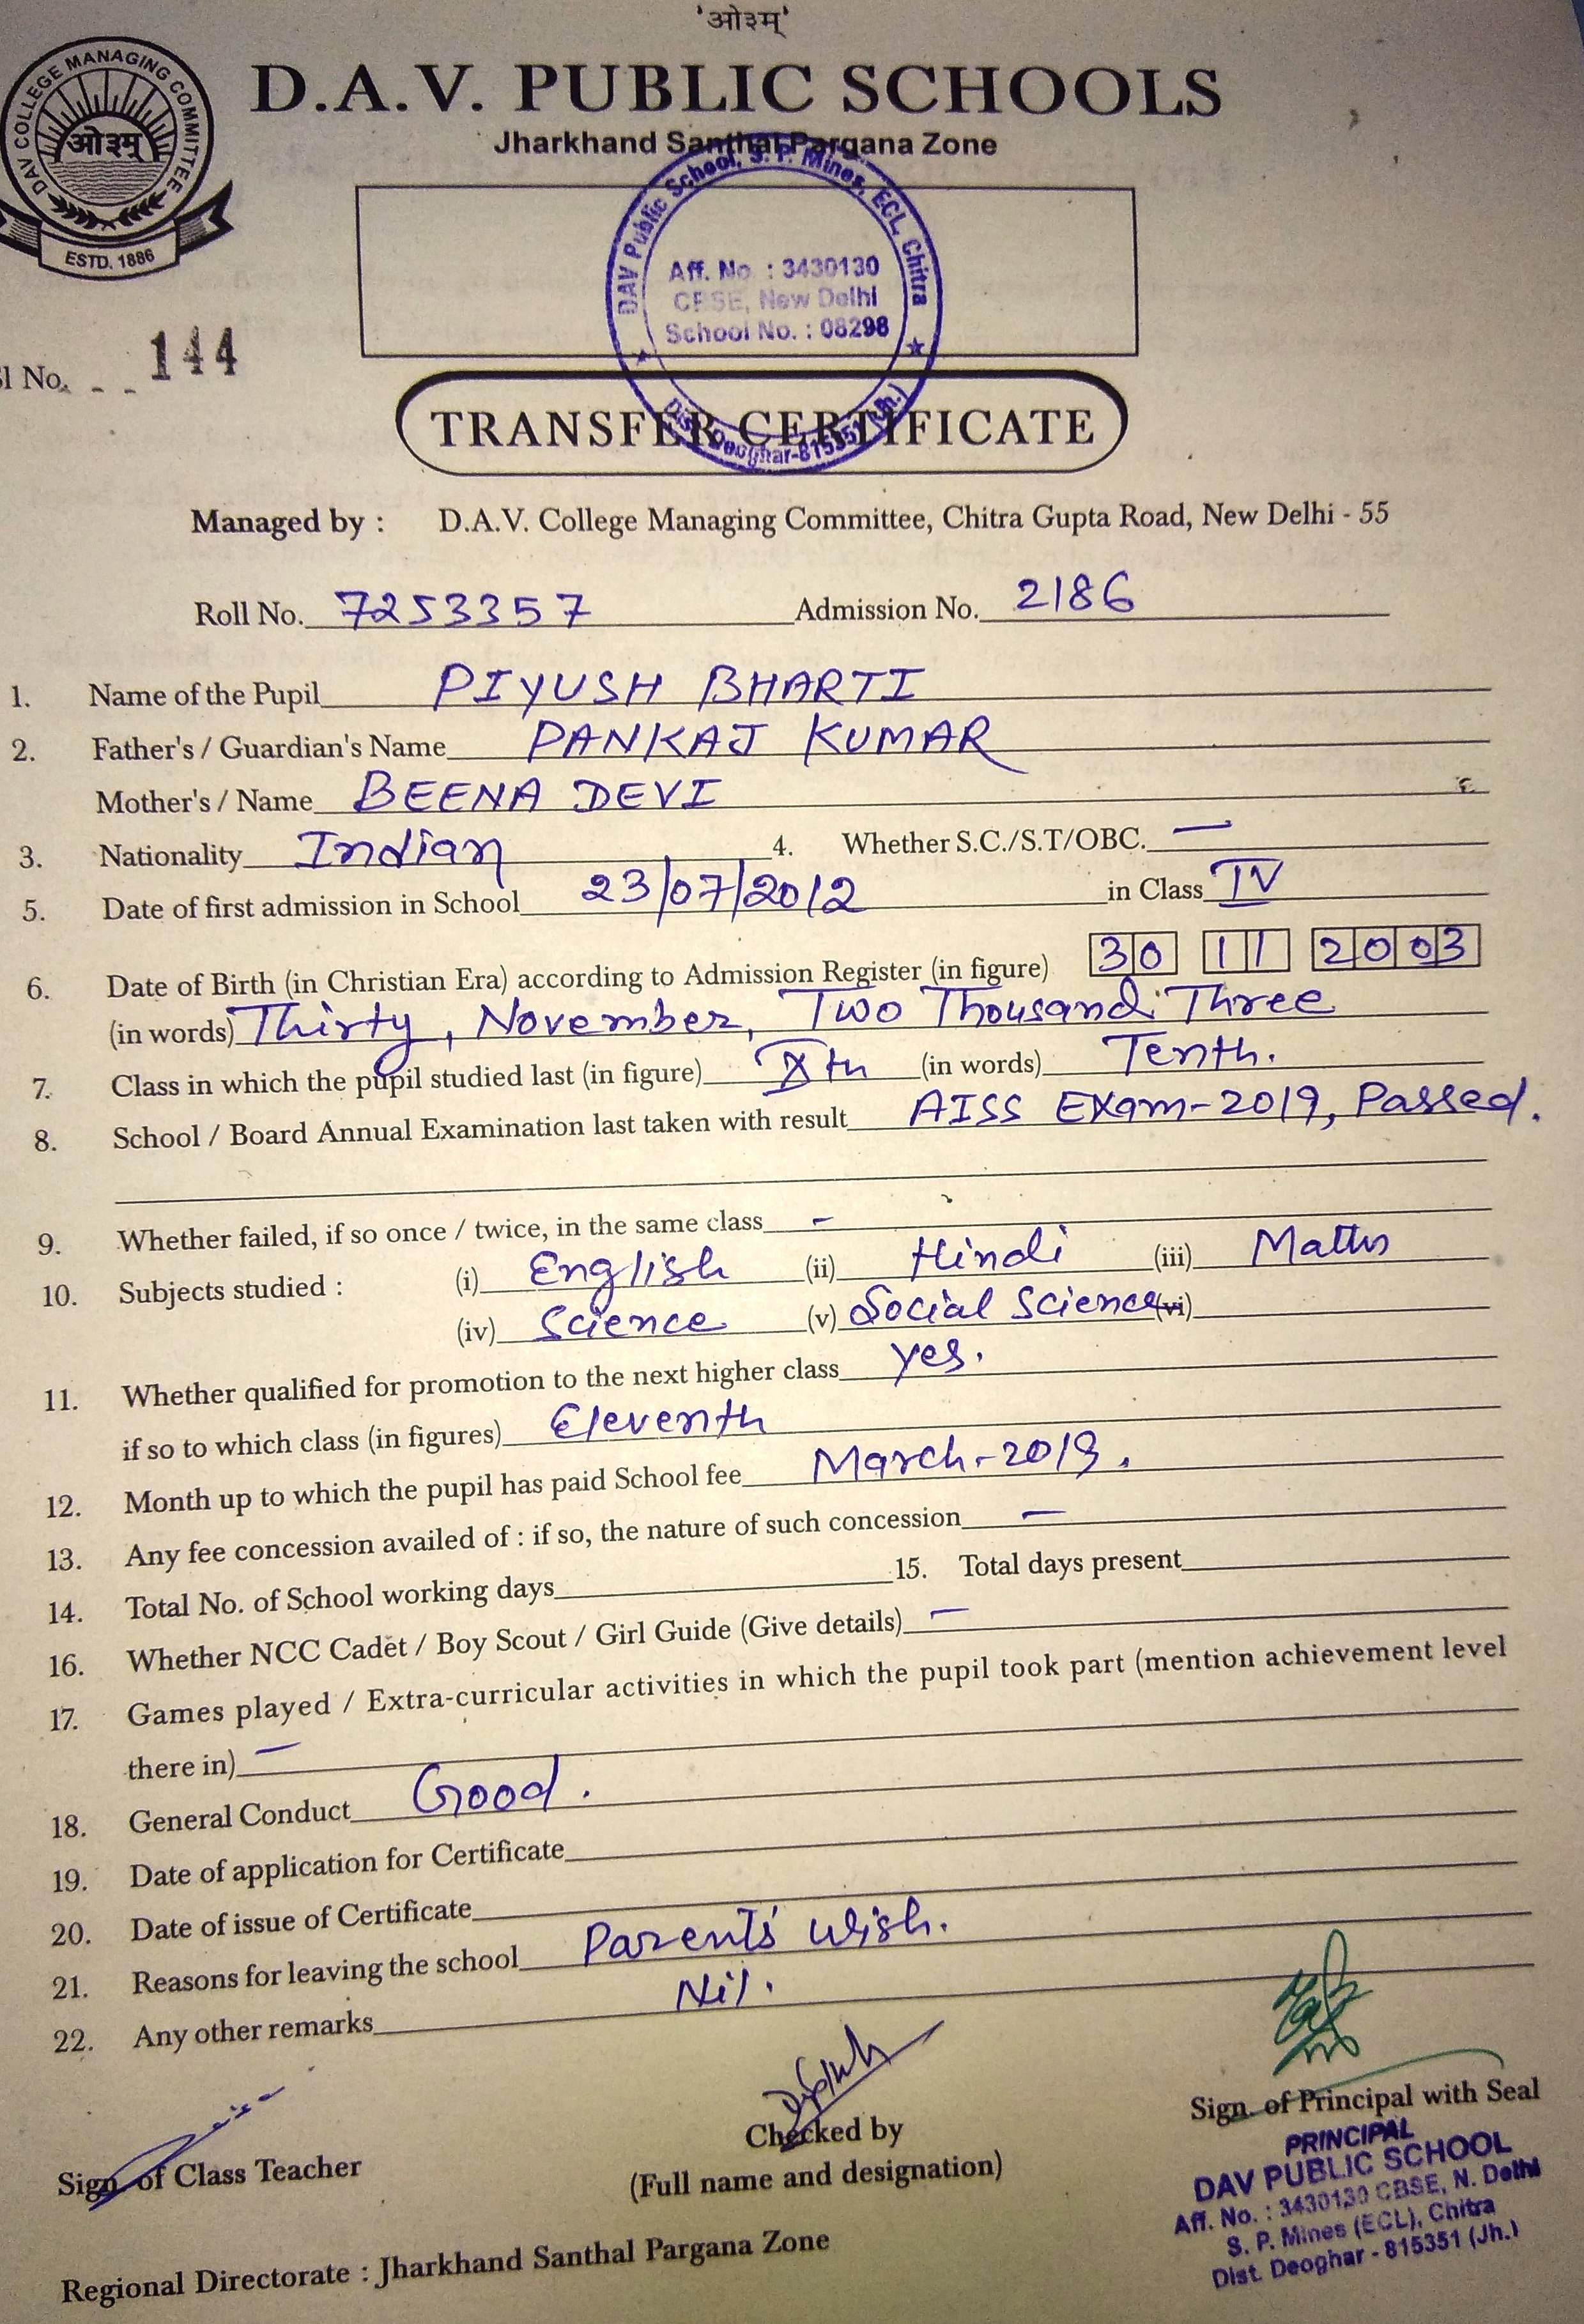 'ओ३म्'
DAV COLLEGE MANAGING COMMITTEE
ओ३म्
ESTD. 1886
D.A.V. PUBLIC SCHOOLS
Jharkhand Santhal Pargana Zone
DAV Public School, S. P. Mines, ECL, Chitra
Aff. No. : 3430130
CBSE, New Delhi
School No. : 08298
Dist. Deoghar-815351 (Jh.)
Sl No. 144
TRANSFER CERTIFICATE
Managed by : D.A.V. College Managing Committee, Chitra Gupta Road, New Delhi - 55
Roll No. 7253357 Admission No. 2186
1. Name of the Pupil PIYUSH BHARTI
2. Father's / Guardian's Name PANKAJ KUMAR
Mother's / Name BEENA DEVI
3. Nationality Indian 4. Whether S.C./S.T/OBC. —
5. Date of first admission in School 23/07/2012 in Class IV
6. Date of Birth (in Christian Era) according to Admission Register (in figure) 30 11 2003
(in words) Thirty, November, Two Thousand Three
7. Class in which the pupil studied last (in figure) Xth (in words) Tenth.
8. School / Board Annual Examination last taken with result AISS Exam-2019, Passed.
9. Whether failed, if so once / twice, in the same class -
10. Subjects studied : (i) English (ii) Hindi (iii) Maths
(iv) Science (v) Social Science (vi)
11. Whether qualified for promotion to the next higher class yes.
if so to which class (in figures) Eleventh
12. Month up to which the pupil has paid School fee March-2019.
13. Any fee concession availed of : if so, the nature of such concession —
14. Total No. of School working days 15. Total days present
16. Whether NCC Cadet / Boy Scout / Girl Guide (Give details) —
17. Games played / Extra-curricular activities in which the pupil took part (mention achievement level
there in) —
18. General Conduct Good.
19. Date of application for Certificate
20. Date of issue of Certificate
21. Reasons for leaving the school Parents' wish.
22. Any other remarks Nil.
Sign. of Class Teacher
Checked by
(Full name and designation)
Sign. of Principal with Seal
PRINCIPAL
DAV PUBLIC SCHOOL
Aff. No. : 3430130 CBSE, N. Delhi
S. P. Mines (ECL), Chitra
Dist. Deoghar - 815351 (Jh.)
Regional Directorate : Jharkhand Santhal Pargana Zone